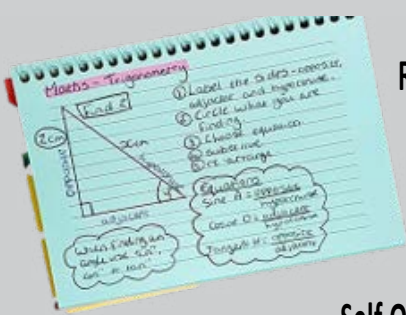 Maths - Trigonometry
Find x
2cm
xcm
opposite
hypotenuse
adjacent
① Label the sides - opposite,
adjacent and hypotenuse.
② Circle what you are
finding
③ Choose equation
④ substitute
⑤ re-arrange
Equations
Sine θ = opposite
hypotenuse
Cosine θ = adjacent
hypotenuse
Tangent θ = opposite
adjacent
When finding an
angle use sin⁻¹,
cos⁻¹ or tan⁻¹